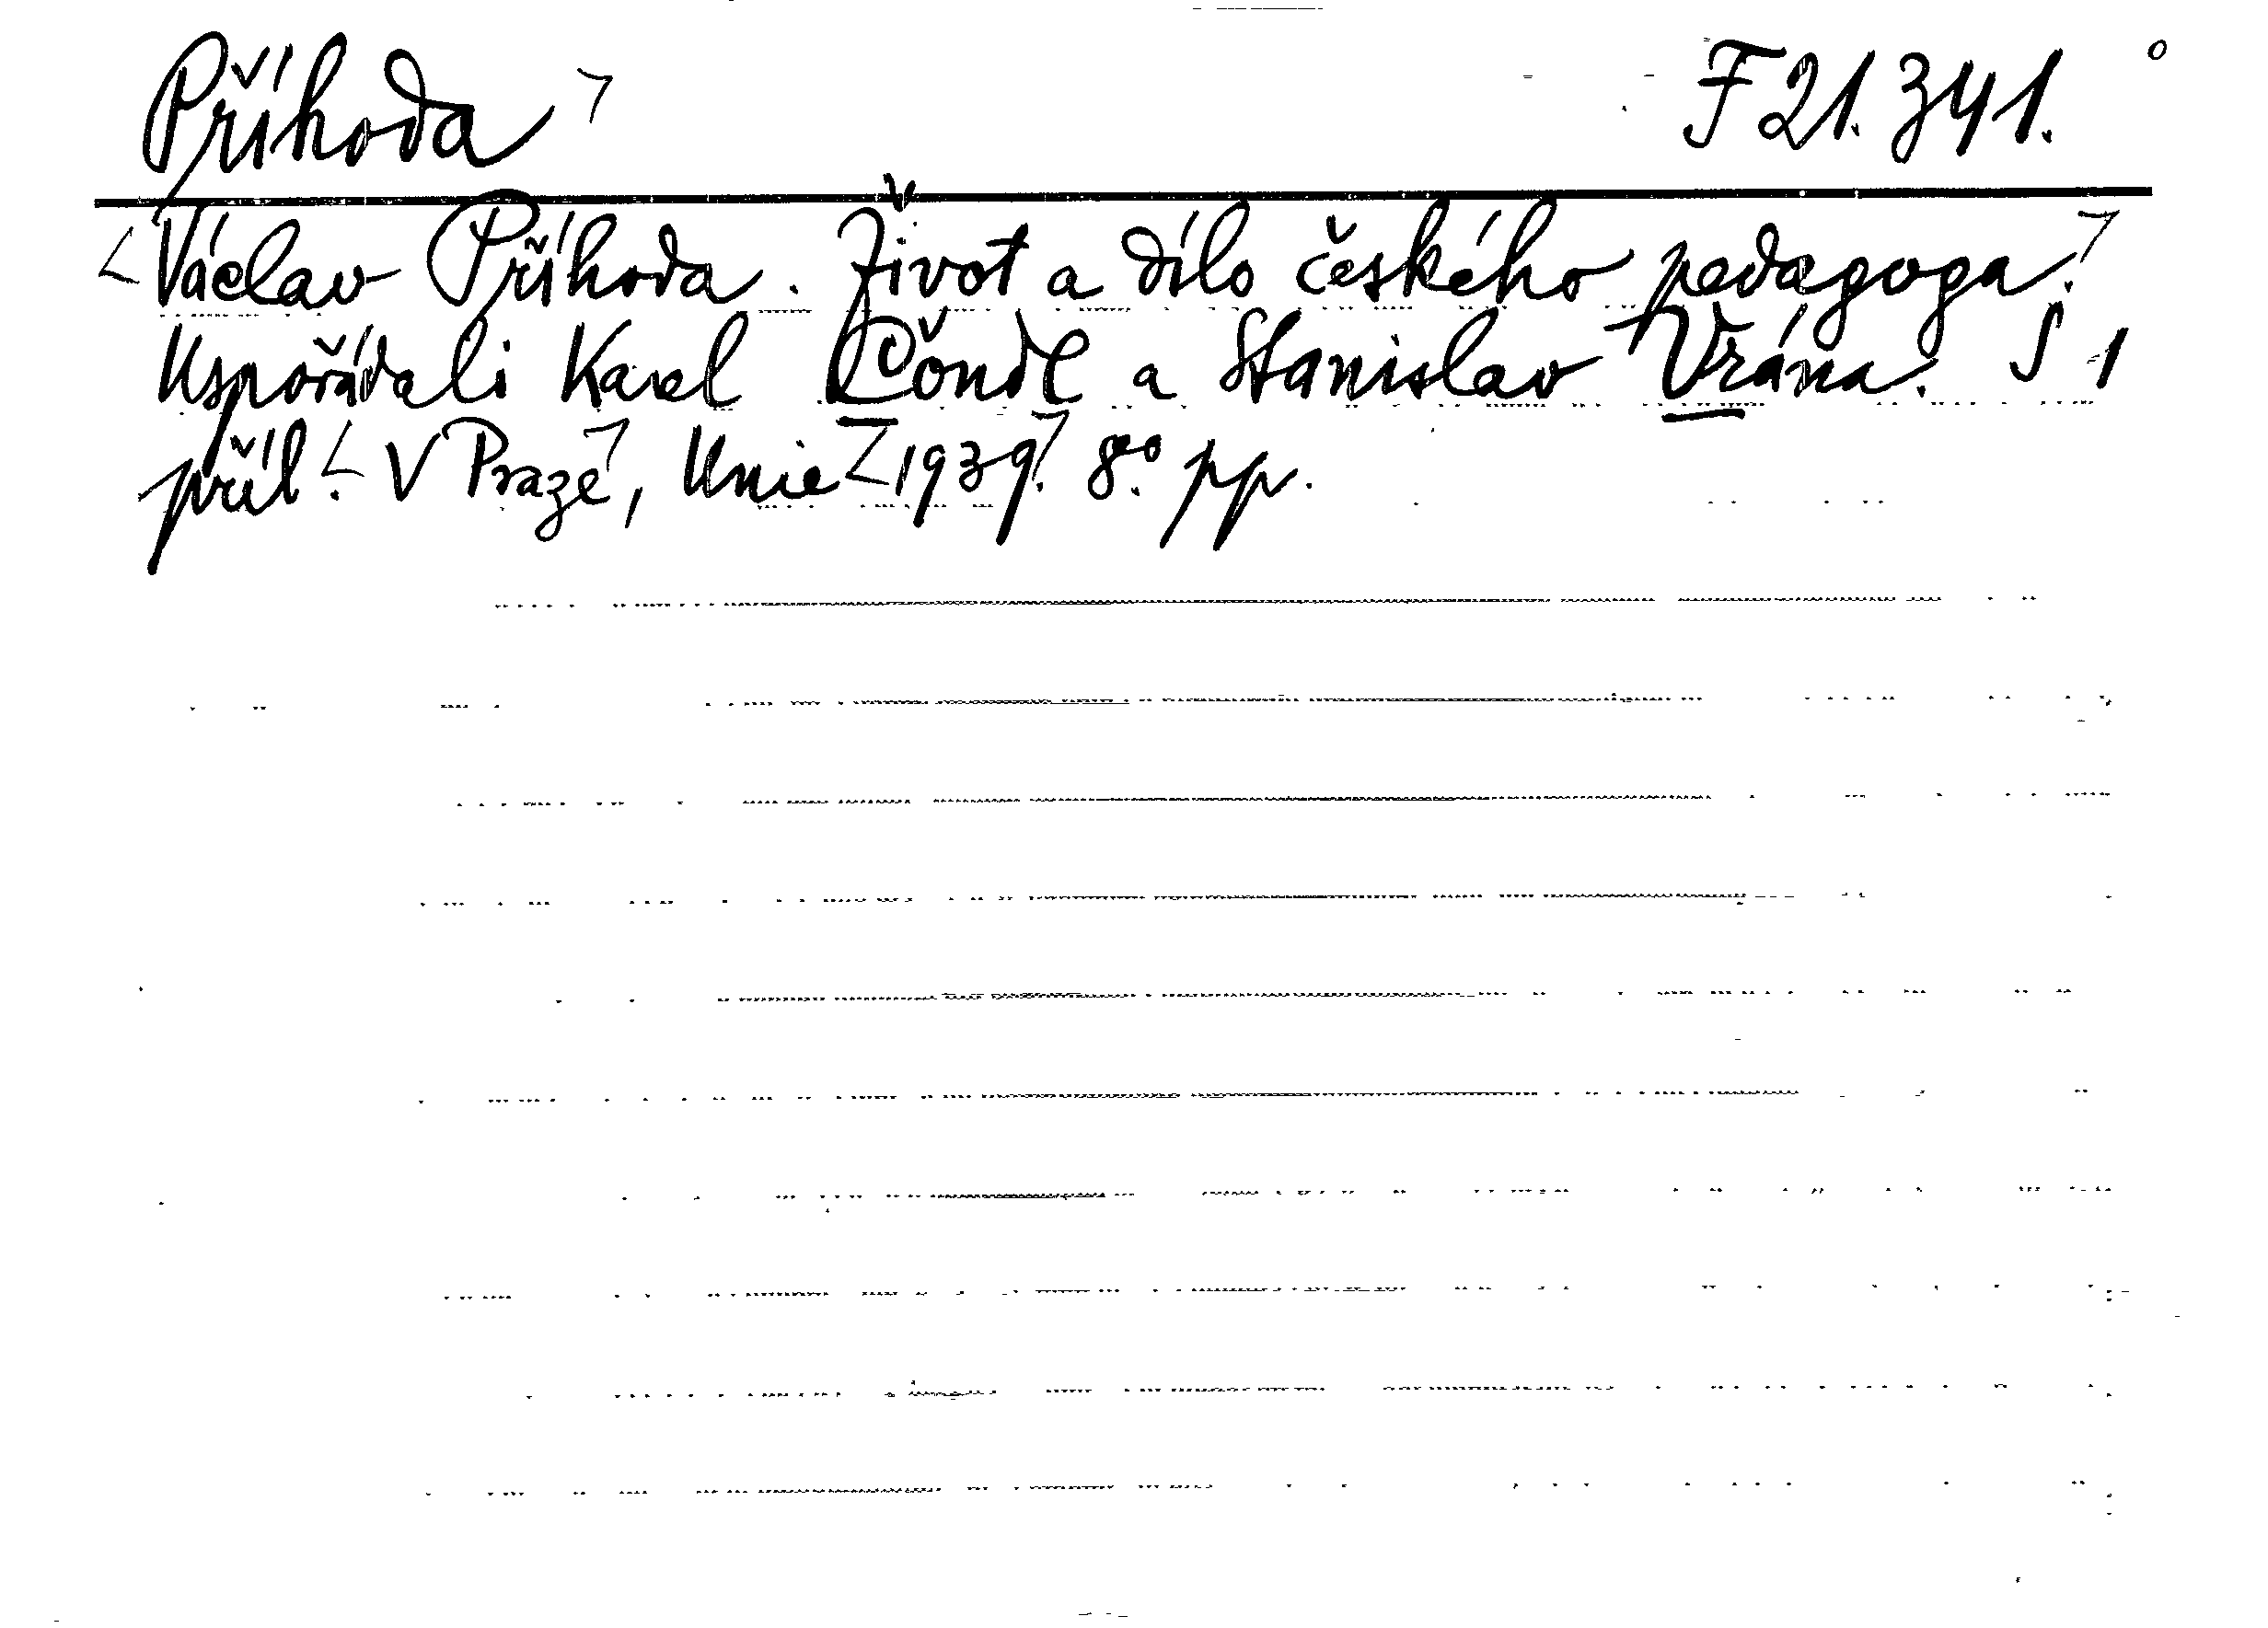 Příhoda F 21.341.
Václav Příhoda. Život a dílo českého pedagoga.
Uspořádali Karel Čondl a Stanislav Vrána. S 1
příl. V Praze, Unie 1939. 8° pp.